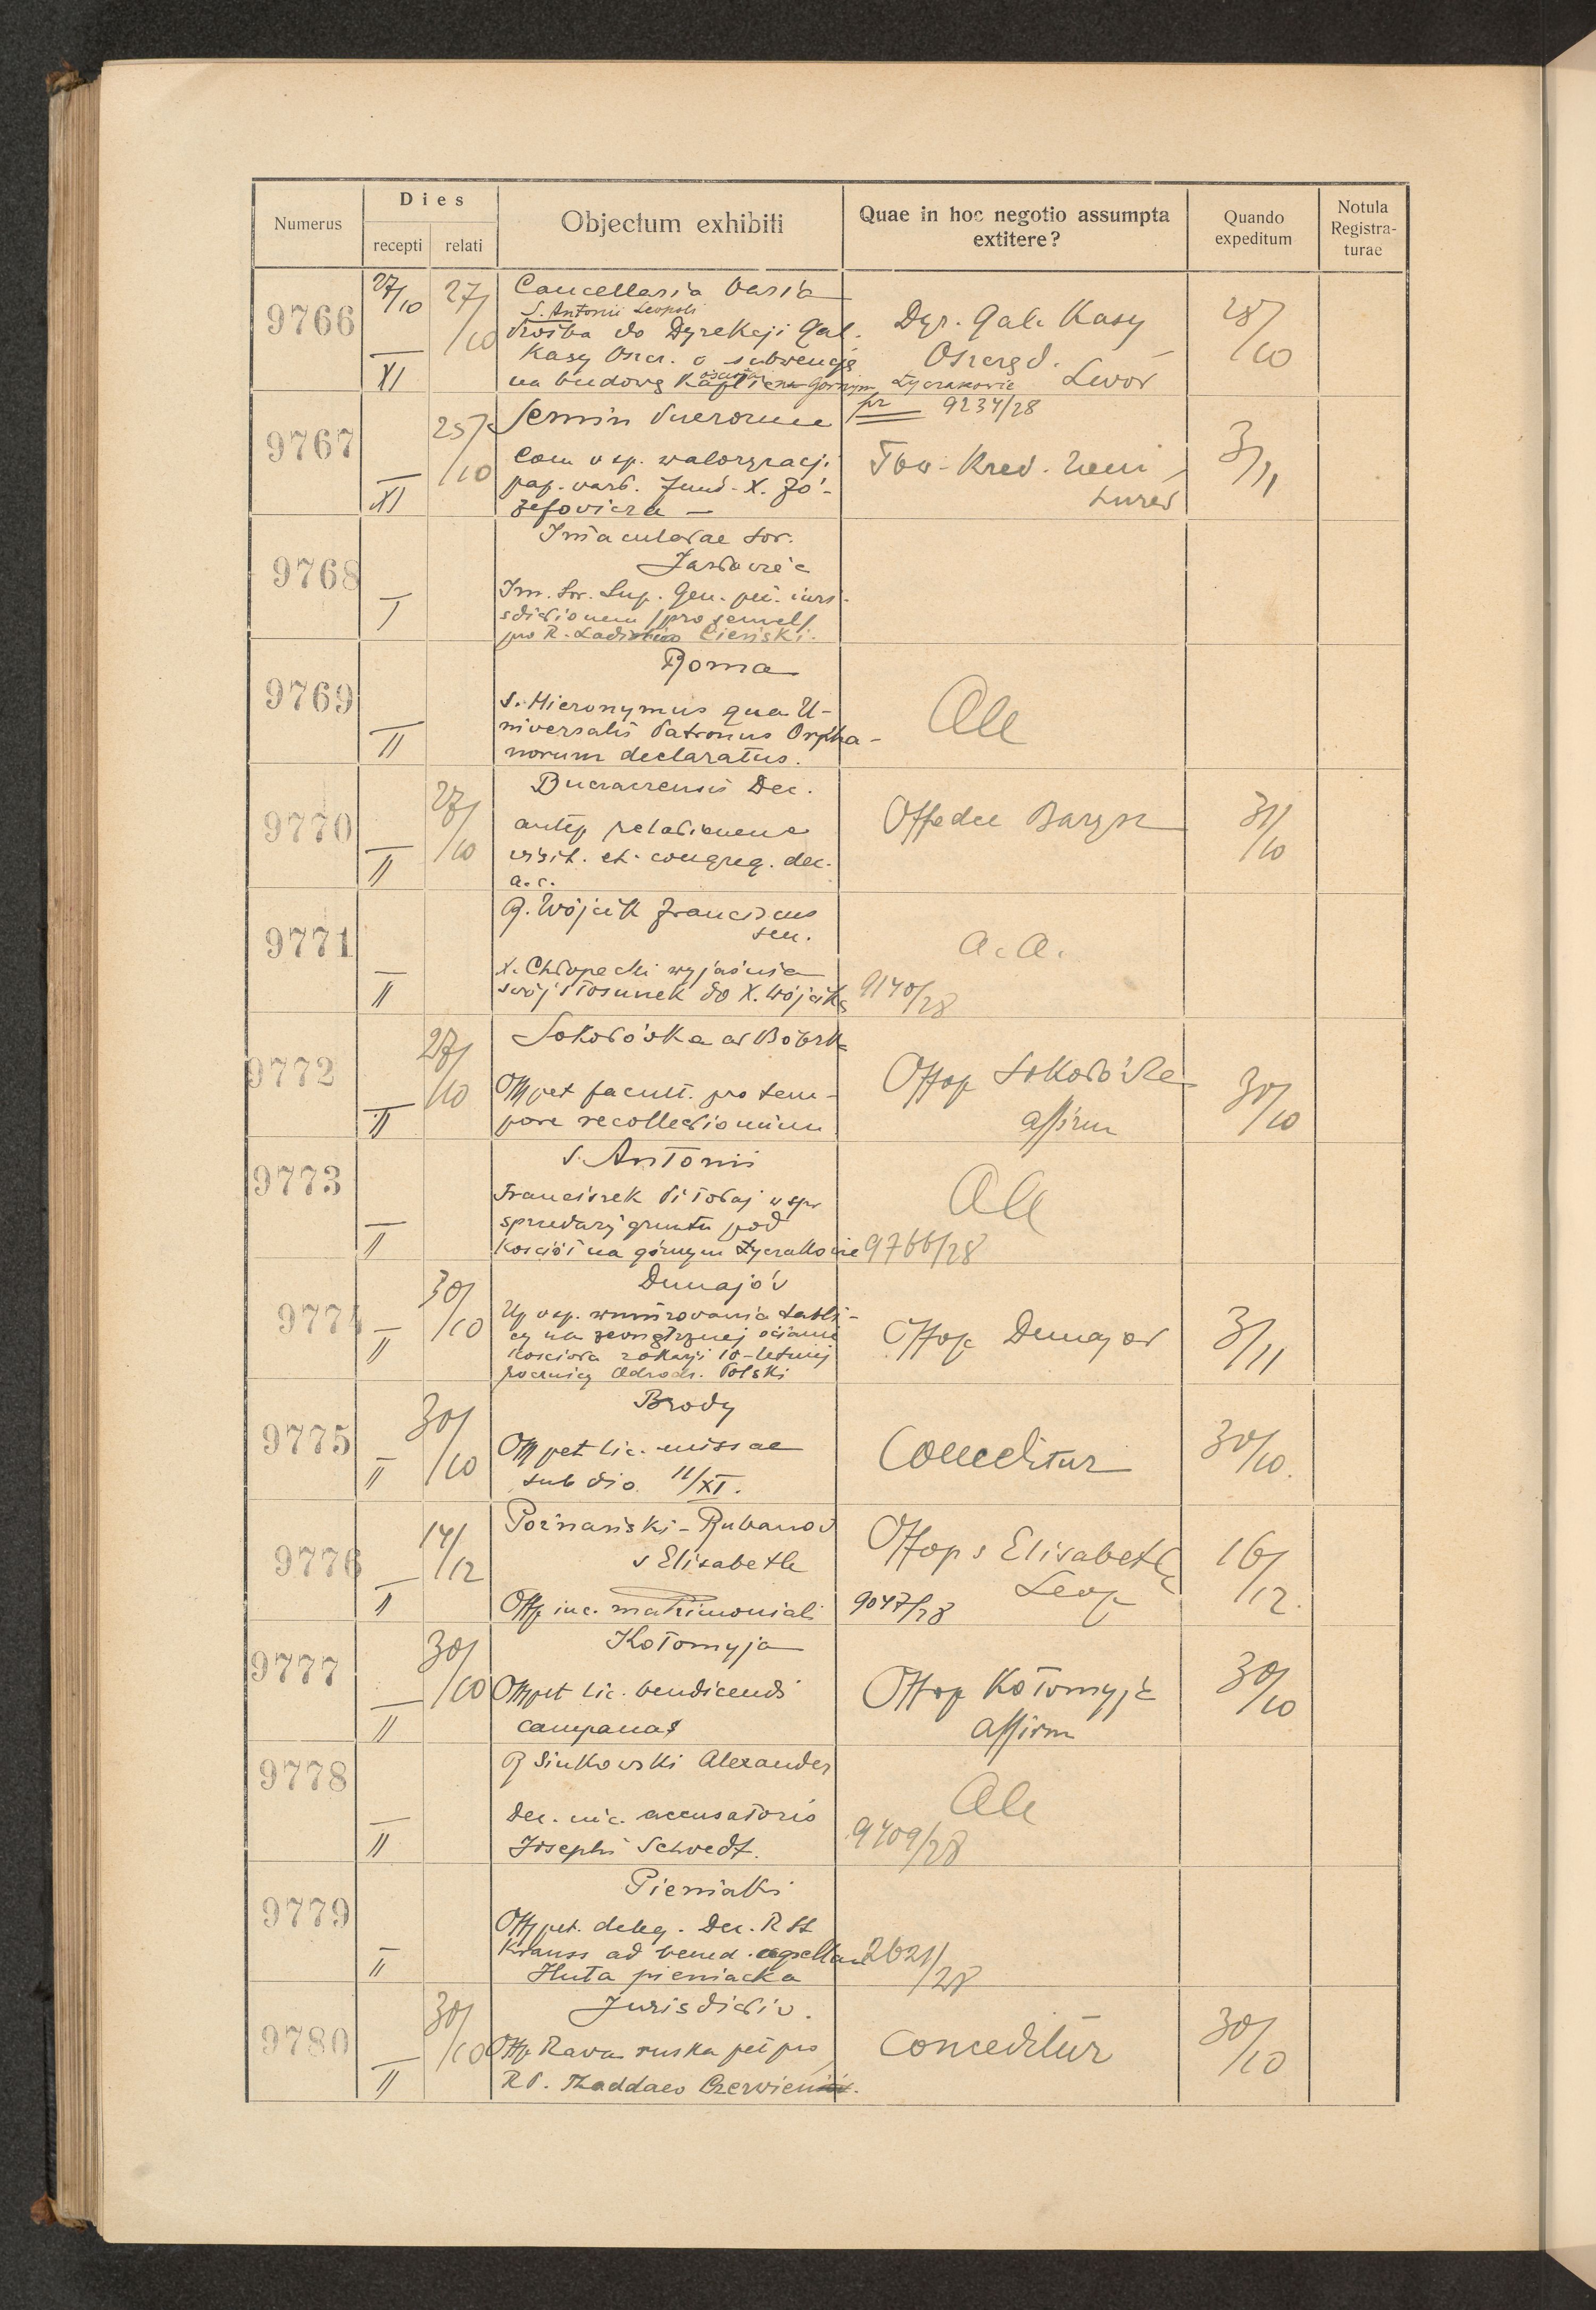 Numerus
Dies
recepti relati
Objectum exhibiti
Quae in hoc negotio assumpta
extitere?
Quando
expeditum
Notula
Registra-
turae
9766
27/10
XI
27/10
Cancellaria varia
S. Antonii Leopoli
Prośba do Dyrekcji Gal.
Kasy Oszcz. o subwencję
na budowę na Górnym Łyczakowie
Dyr. Gal. Kasy
Oszczęd.
Lwów
28/10
9767
XI
25/10
Semin Puerorum
Com w sp. waloryzacji
pap. wart. fund. X. Jó-
zefowicza —
pr 9234/28
Tow. Kred. Ziem
Lwów
3/11
9768
I
Imaculatae Sor.
Jazłowiec
Im. Sor. Sup. Gen. pet. iuri-
sdictionem /pro semel/
pro R. Ladislao Cieński.
9769
II
Roma
S. Hieronymus qua U-
niversalis Patronus Orpha-
norum declaratus.
All
9770
II
27/10
Buczaczensis Dec.
relationem
visit. et congreg. dec.
a.c.
Offo dec Barysz
31/10
9771
II
R. Wójcik Franciscus
sen.
X. Chłopecki wyjaśnia
swój stosunek do X. Wójcika
a. a.
9140/28
9772
II
27/10
Sokołówka ad Bóbrka
Off pet facult. pro tem-
pore recollectionum
Offop Sokołówka
affirm
30/10
9773
II
S. Antonii
Franciszek Pitołaj w spr
sprzedaży gruntu pod
Kościół na górnym Łyczakowie
All
9766/28
9774
II
30/10
Dunajów
Up w sp. wmurowania tabli-
cy na zewnętrznej ścianie
Kościoła z okazji 10-letniej
rocznicy Odrodz. Polski
Offop Dunajów
3/11
9775
II
30/10
Brody
Off pet lic. missae
sub dio 11/XI.
Conceditur
30/10.
9776
II
14/12
Poznański - Rubanow
s Elisabeth
Off in c. matrimoniali
Offop s Elisabeth
Leop
9047/28
16/12.
9777
II
30/10
Kołomyja
Off pet lic. benedicendi
campanas
Offop Kołomyja
affirm
30/10
9778
II
R Sinkowski Alexander
Dec. in c. accusatoris
Josephi Schwedt.
All
9409/28
9779
II
Pieniaki
Off pet. deleg. Dec. R St
Krauss ad bened. capellam
Huta pieniacka
2621/28
9780
II
30/10
Jurisdictio.
Off Rawa ruska pet pro
R P. Thaddaeo
Conceditur
30/10